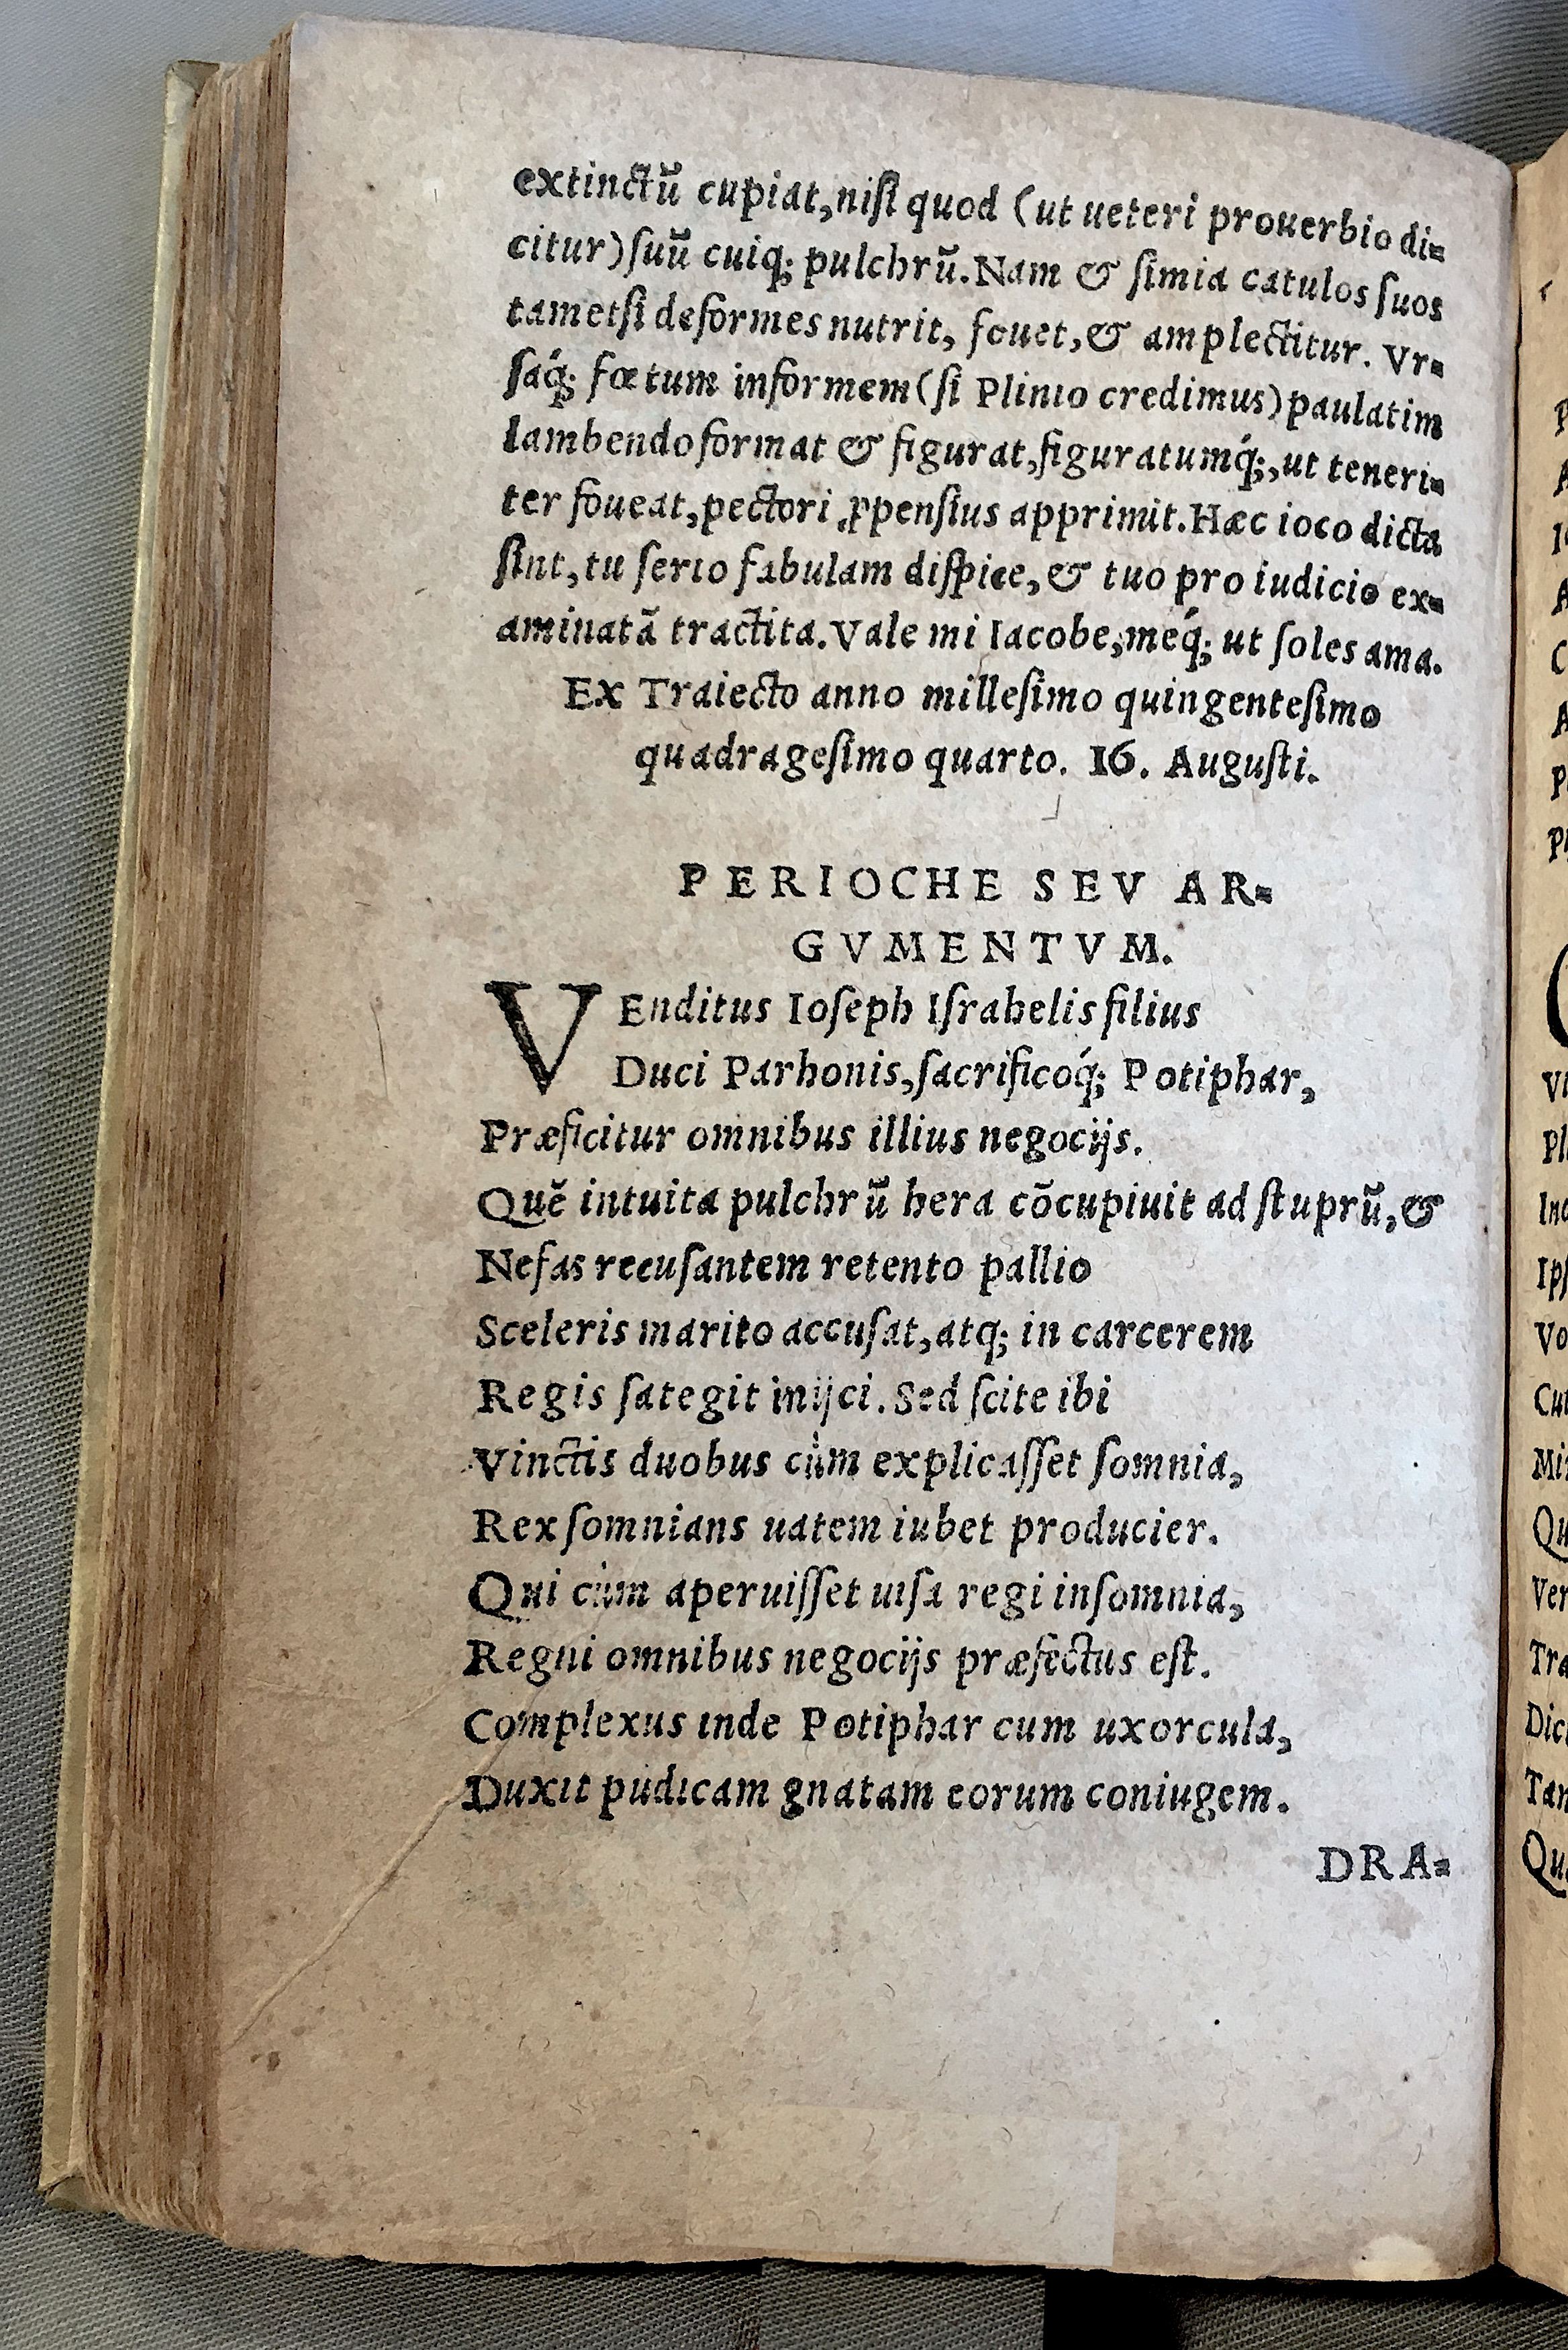 extinctũ cupiat, niſi quod (ut ueteri prouerbio di=
citur) ſuũ cuiq; pulchrũ. Nam & ſimia catulos ſuos
tametſi deformes nutrit, fouet, & amplectitur. Vr=
ſáq; fœtum informem (ſi Plinio credimus) paulatim
lambendo format & figurat, figuratumq́;, ut teneri=
ter foueat, pectori ꝓpenſius apprimit. Hæc ioco dicta
ſint, tu ſerio fabulam diſpice, & tuo pro iudicio ex=
aminatã tractita. Vale mi Iacobe, meq́; ut ſoles ama.
Ex Traiecto anno milleſimo quingenteſimo
quadrageſimo quarto. 16. Auguſti.
PERIOCHE SEV AR=
GVMENTVM.
VEnditus Ioſeph Iſrahelis filius
Duci Parhonis, ſacrificoq́; Potiphar,
Præficitur omnibus illius negocijs.
Quẽ intuita pulchrũ hera cõcupiuit ad ſtuprũ, &
Nefas recuſantem retento pallio
Sceleris marito accuſat, atq; in carcerem
Regis ſategit inijci. Sed ſcite ibi
Vinctis duobus cùm explicaſſet ſomnia,
Rex ſomnians uatem iubet producier.
Qui cùm aperuiſſet uiſa regi inſomnia,
Regni omnibus negocijs præfectus eſt.
Complexus inde Potiphar cum uxorcula,
Duxit pudicam gnatam eorum coniugem.
DRA=